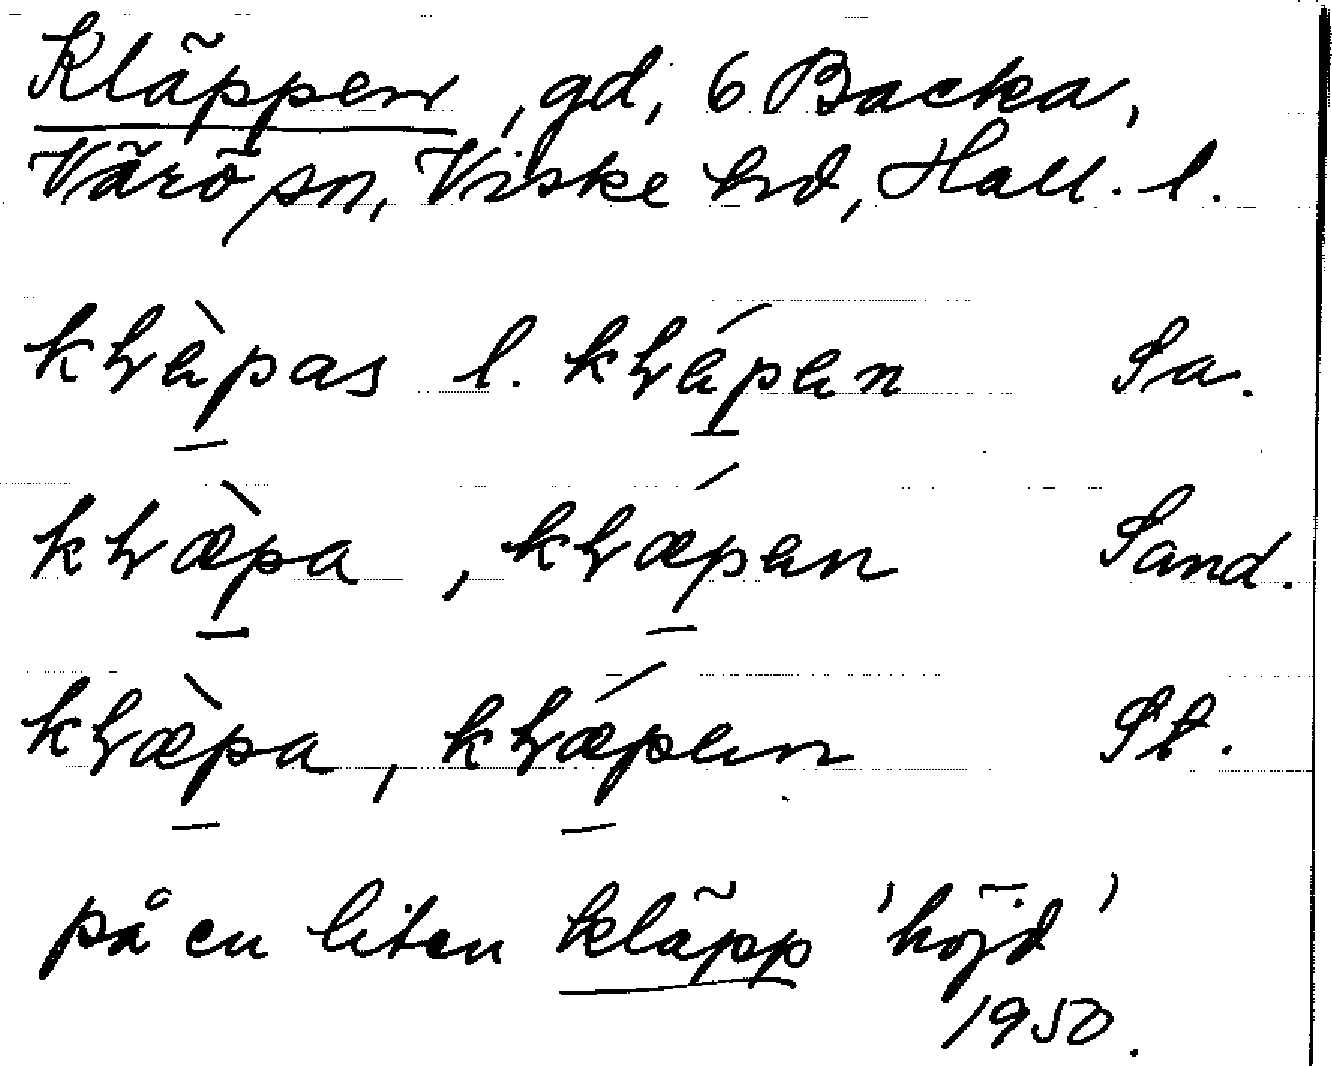 Kläppen, gd, 6 Backa,
Värö sn, Viske hd, Hall. l.
kḷàp̱as l. kḷáp̱an Sa.
kḷæ̀p̱a, kḷǽp̱an Sand.
kḷæ̀p̱a, kḷǽp̱an St.
på en liten kläpp 'höjd'
1950.